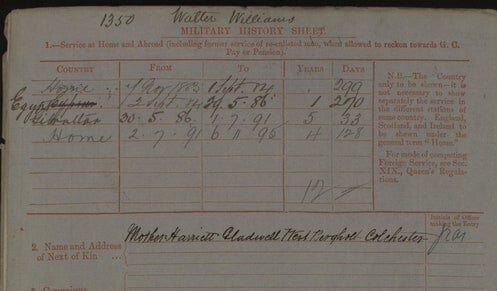 1350 Walter Williams
MILITARY HISTORY SHEET.
1.—Service at Home and Abroad (including former service of re-enlisted men, when allowed to reckon towards G. C.
Pay or Pension).
COUNTRY FROM TO YEARS DAYS
Home 7 Nov 1883 1 Sept. 84 . 299
Egypt 2 Sept. 84 29. 5. 86 1 270
Gibraltar 30. 5. 86. 1. 7. 91 5 33
Home 2. 7. 91 6 11 95 4 128
12
N.B.—The "Country
only to be shown—it is
not necessary to show
separately the service in
the different stations of
same country. England,
Scotland, and Ireland to
be shown under the
general term "Home."
For mode of computing
Foreign Service, see Sec.
XIX., Queen's Regula-
tions.
Initials of Officer
making the Entry
2. Name and Address
of Next of Kin
Mother Harriett Gladwell West Bergholt Colchester